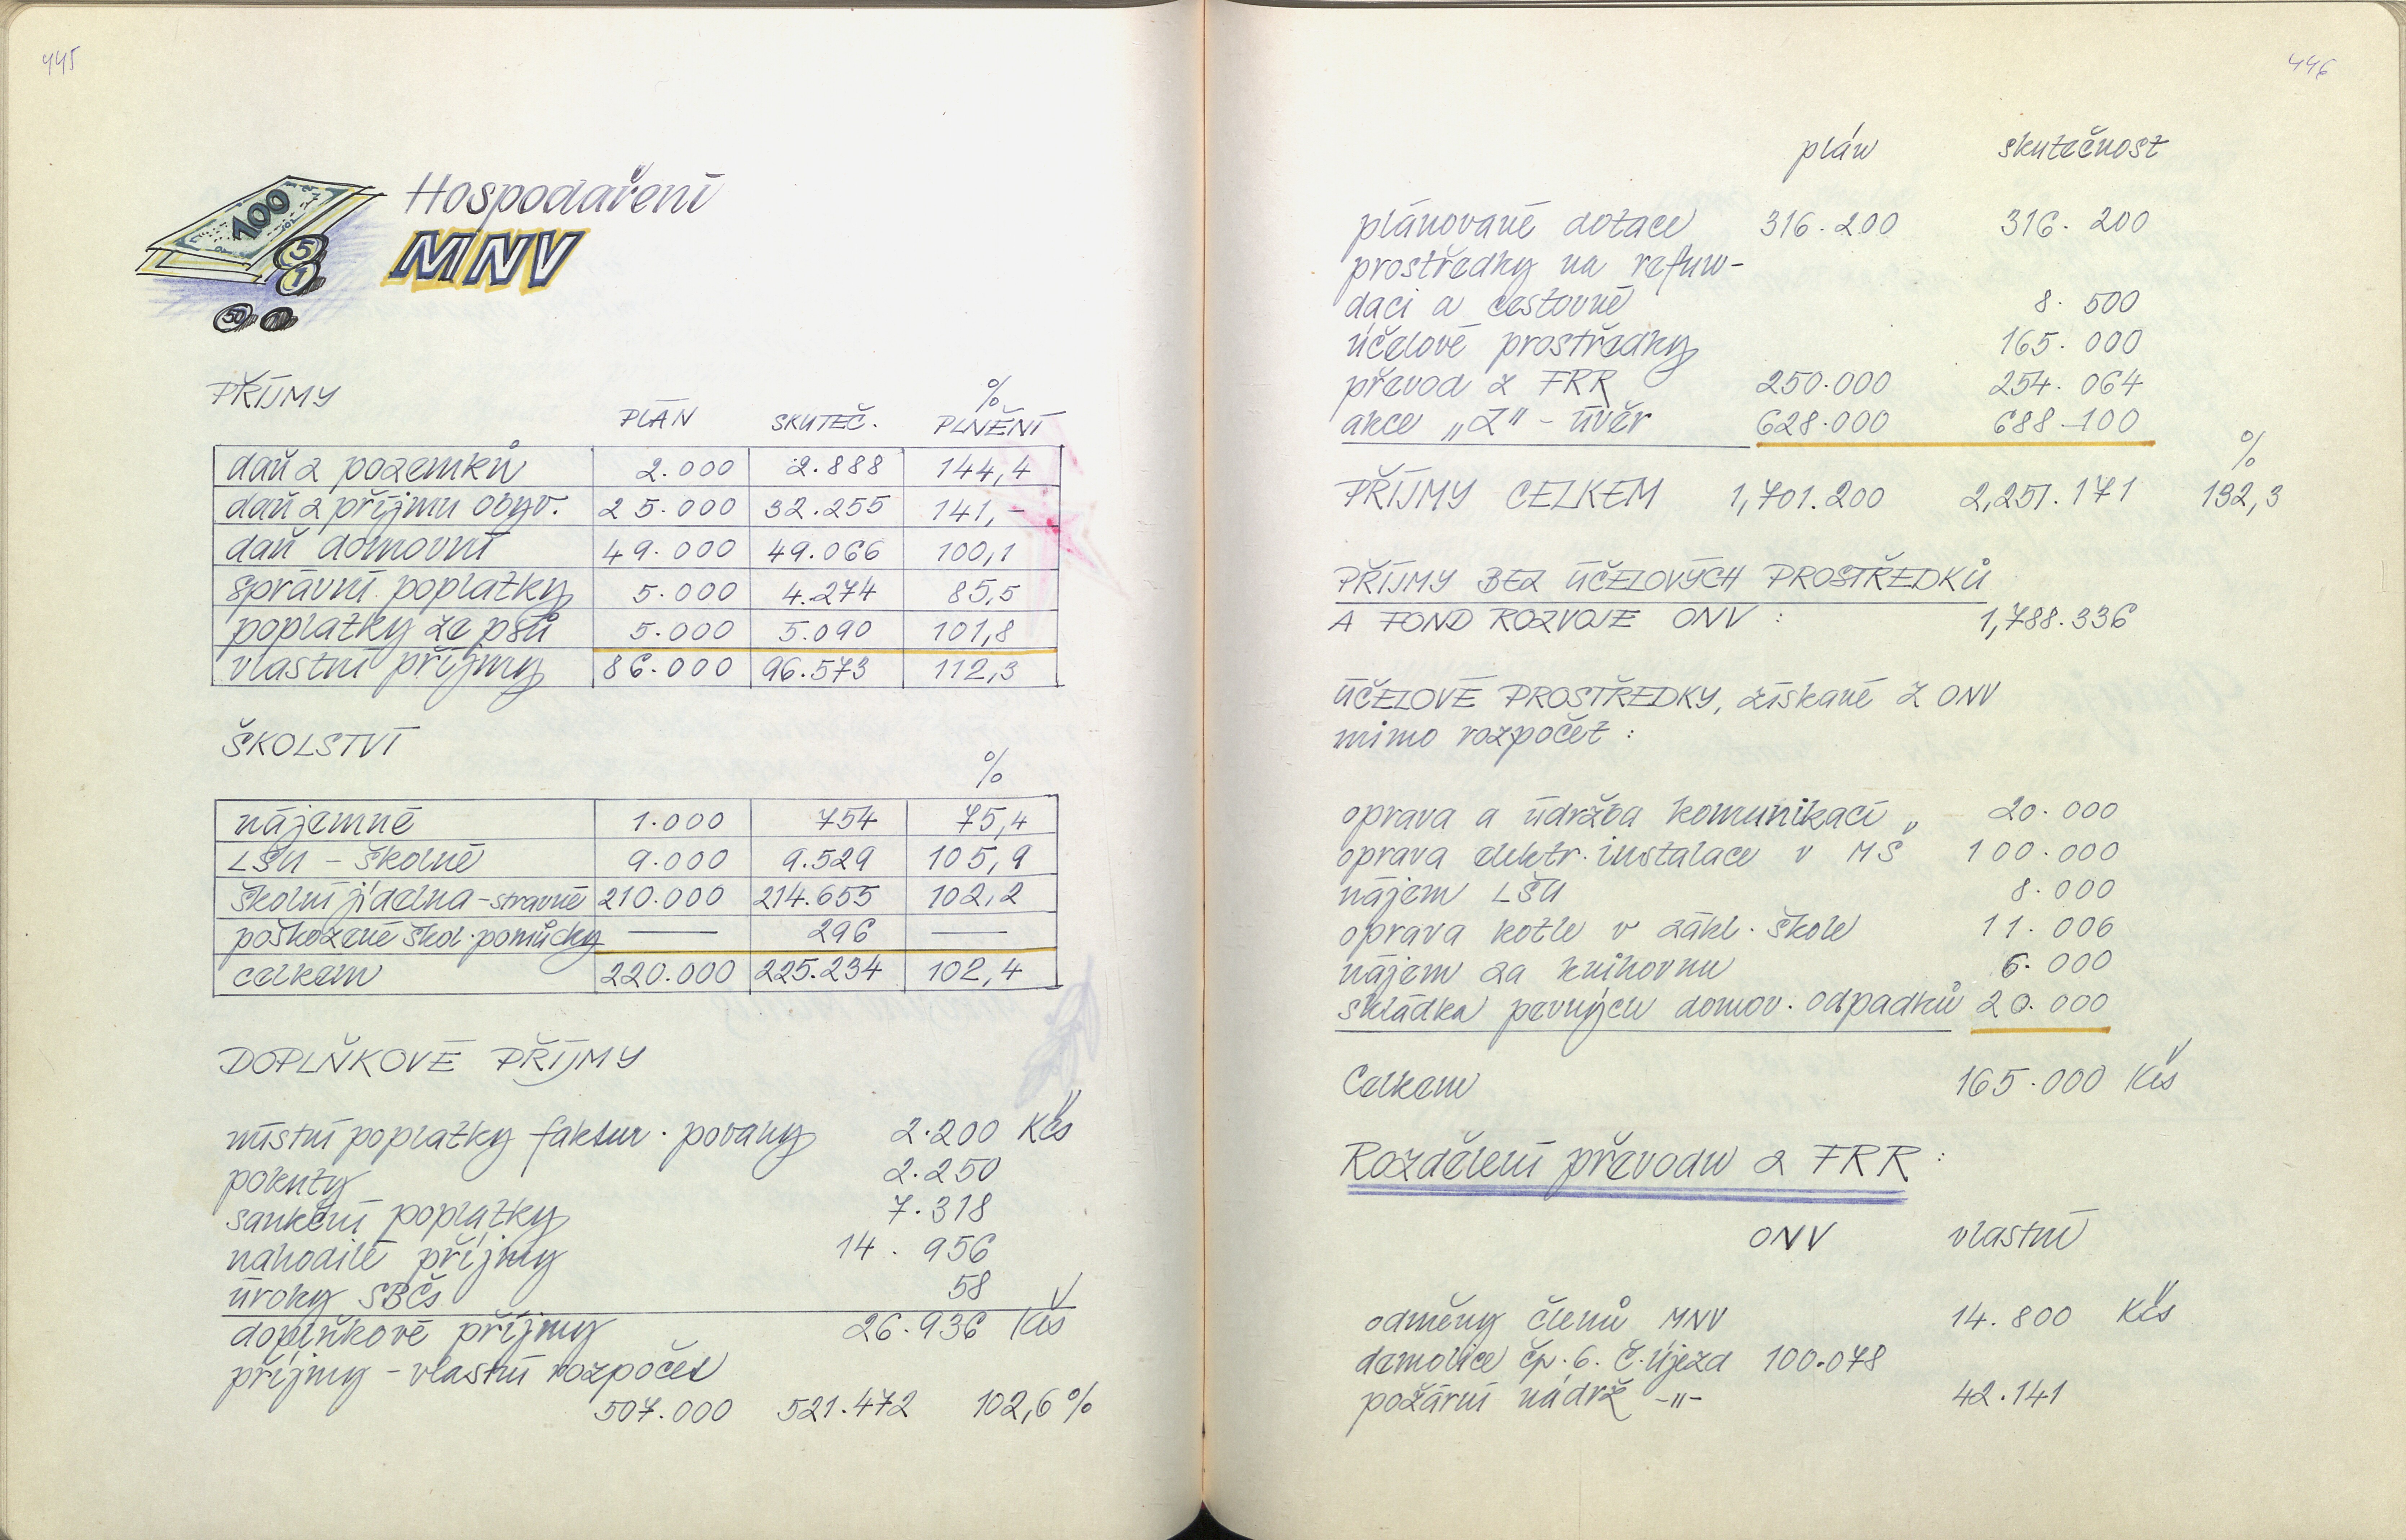 445
100
5
1
50
Hospodaření
MNV
PŘÍJMY
PLÁN SKUTEČ. % PLNĚNÍ
daň z pozemků 2.000 2.888 144,4
daň z příjmu obyv. 25.000 32.255 141,-
daň domovní 49.000 49.066 100,1
správní poplatky 5.000 4.274 85,5
poplatky ze psů 5.000 5.090 101,8
vlastní příjmy 86.000 96.573 112,3
ŠKOLSTVÍ
%
nájemné 1.000 754 75,4
LŠU - školné 9.000 9.529 105,9
školní jídelna - stravné 210.000 214.655 102,2
poškozené škol. pomůcky — 296 —
celkem 220.000 225.234 102,4
DOPLŇKOVÉ PŘÍJMY
místní poplatky faktur. povahy 2.200 Kčs
pokuty 2.250
sankční poplatky 7.318
nahodilé příjmy 14.956
úroky SBČs 58
doplňkové příjmy 26.936 Kčs
příjmy - vlastní rozpočet
507.000 521.472 102,6 %
446
plán skutečnost
plánované dotace 316.200 316.200
prostředky na refun-
daci a cestovné 8.500
účelové prostředky 165.000
převod z FRR 250.000 254.064
akce „Z" - úvěr 628.000 688-100
%
PŘÍJMY CELKEM 1,701.200 2,251.171 132,3
PŘÍJMY BEZ ÚČELOVÝCH PROSTŘEDKŮ
A FOND ROZVOJE ONV : 1,788.336
ÚČELOVÉ PROSTŘEDKY, získané z ONV
mimo rozpočet :
oprava a údržba komunikací 20.000
oprava elektr. instalace v MŠ 100.000
nájem LŠU 8.000
oprava kotle v zákl. škole 11.006
nájem za knihovnu 6.000
skládka pevných domov. odpadků 20.000
Celkem 165.000 Kčs
Rozdělení převodu z FRR :
ONV vlastní
odměny členů MNV 14.800 Kčs
demolice čp. 6. Č. Újezd 100.078
požární nádrž -"- 42.141